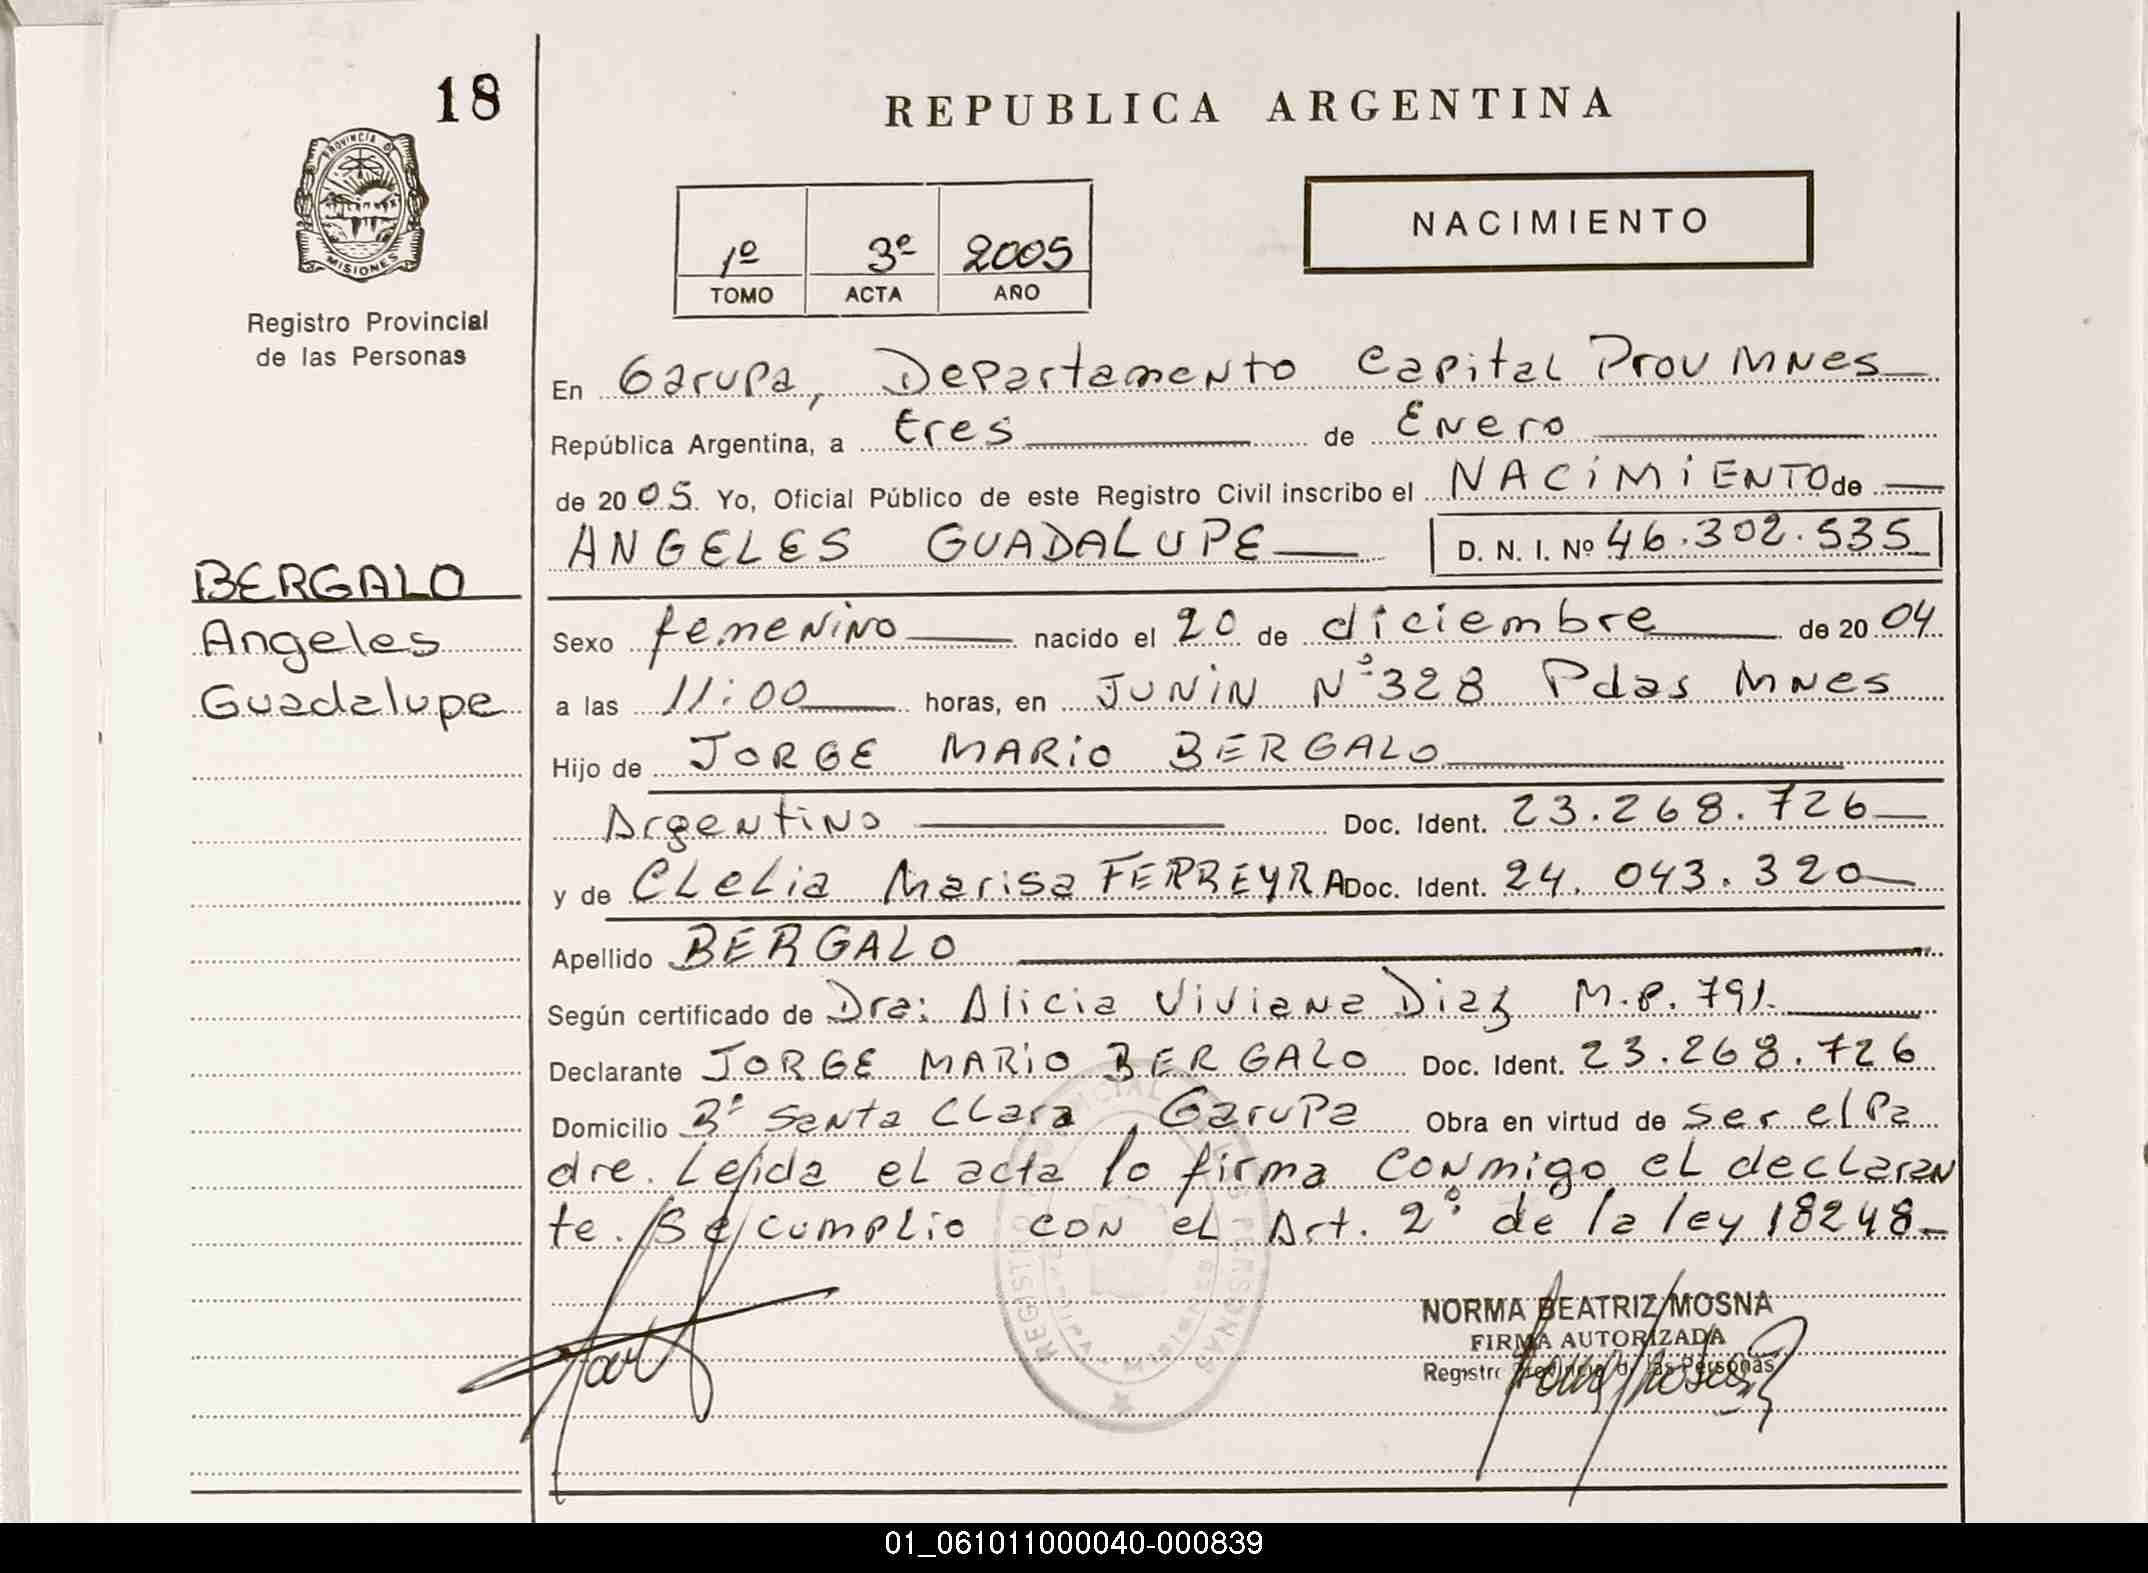 18
REPUBLICA ARGENTINA
PROVINCIA DE
MISIONES
Registro Provincial
de las Personas
1º 3º 2005
TOMO ACTA AÑO
NACIMIENTO
En Garupa, Departamento Capital Prov Mnes
República Argentina, a tres de Enero
de 2005. Yo, Oficial Público de este Registro Civil inscribo el NACIMIENTO de
ANGELES GUADALUPE D. N. I. Nº 46.302.535
BERGALO
Angeles
Guadalupe
Sexo femenino nacido el 20 de diciembre de 2004
a las 11:00 horas, en JUNIN Nº 328 Pdas Mnes
Hijo de JORGE MARIO BERGALO
Argentino Doc. Ident. 23.268.726
y de CLelia Marisa FERREYRA Doc. Ident. 24.043.320
Apellido BERGALO
Según certificado de Dra: Alicia Viviana Diaz M.P. 791.
Declarante JORGE MARIO BERGALO Doc. Ident. 23.268.726
Domicilio Bº Santa Clara, Garupa Obra en virtud de ser el Pa
dre. Leida el acta lo firma conmigo el declaran
te. Se cumplio con el Art. 2º de la ley 18248-
NORMA BEATRIZ MOSNA
FIRMA AUTORIZADA
Registro Provincial de las Personas
01_061011000040-000839